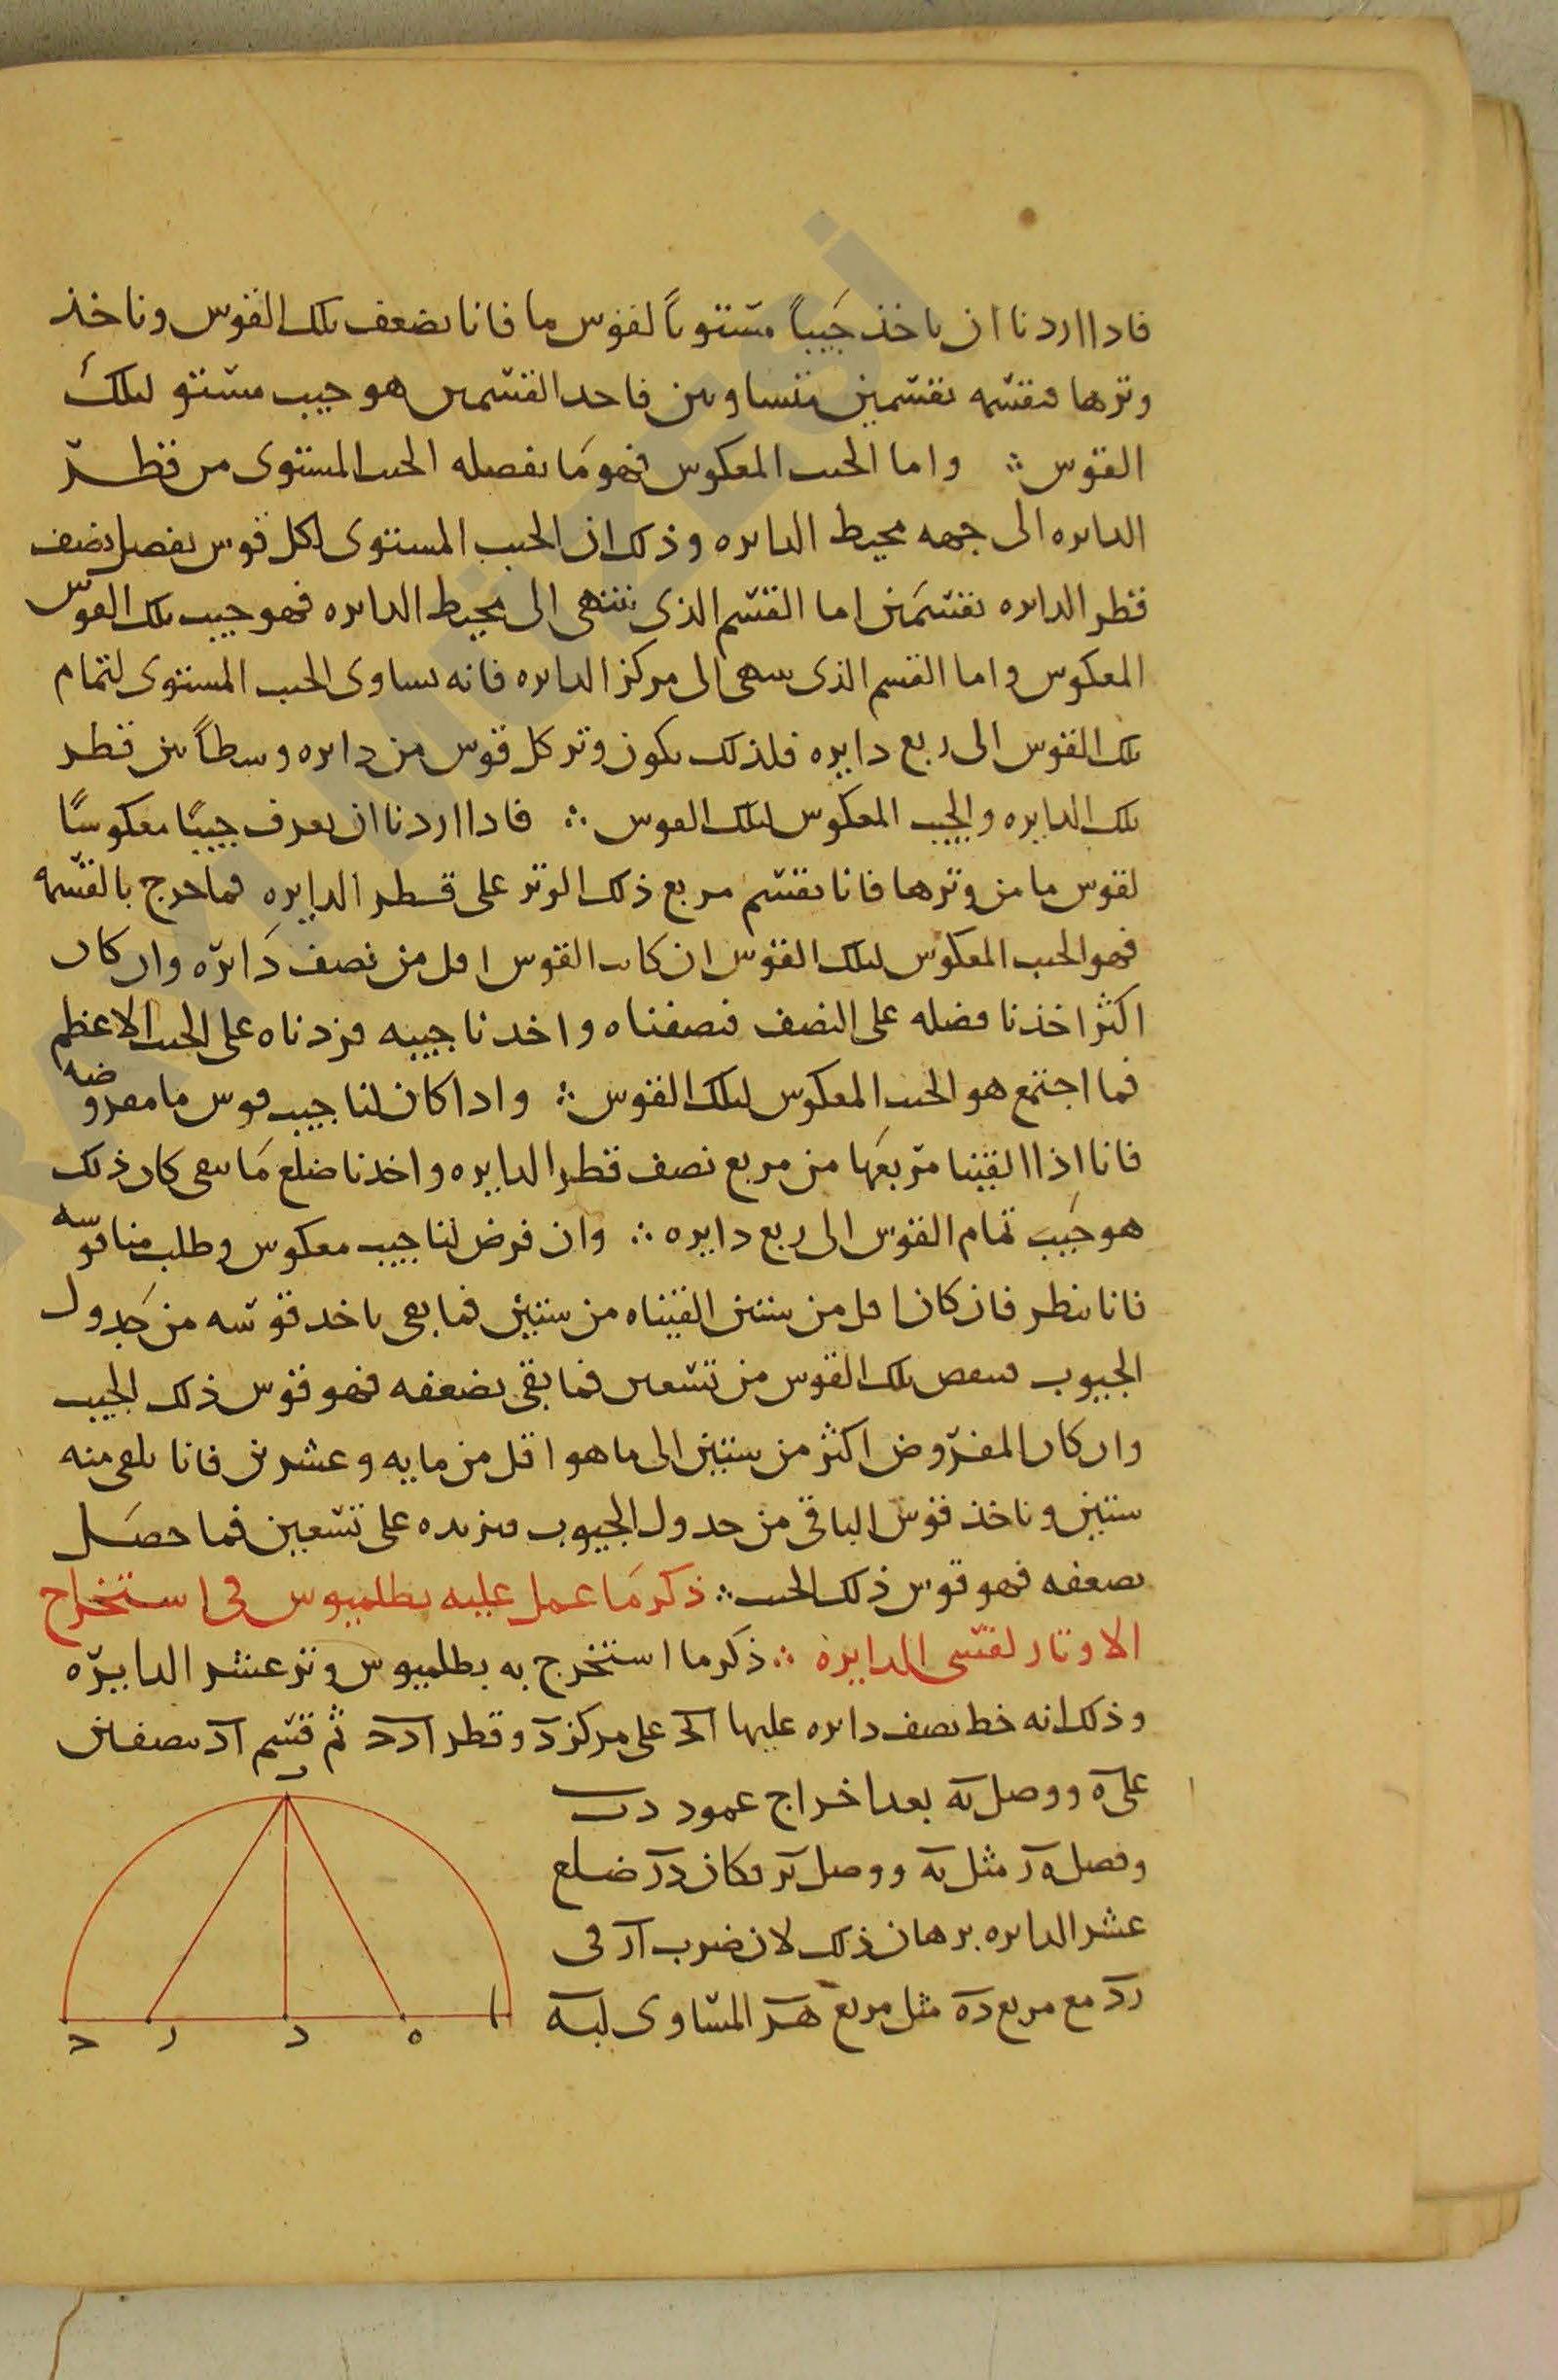 فاذا اردنا ان ناخذ جَيباً مستوياً لقوس ما فانا نضعف تلك القوس وناخذ
وترها فنقسمه بقسمين متساويين فاحد القسمين هو جيب مستو لتلك
القوس ؞ واما الجيب المعكوس فهو ما يفصله الجيب المستوى من قطر
الدايره الى جهه محيط الدايره وذلك ان الجيب المستوى لكل قوس يفصل نصف
قطر الدايره بقسمين اما القسم الذى ينتهى الى محيط الدايره فهو جيب تلك القوس
المعكوس واما القسم الذى ينتهى الى مركز الدايره فانه يساوى الجيب المستوى لتمام
تلك القوس الى ربع دايره فلذلك يكون وتر كل قوس من دايره وسطاً بين قطر
تلك الدايره والجيب المعكوس لتلك القوس ؞ فاذا اردنا ان نعرف جيبًا معكوسًا
لقوس ما من وترها فانا نقسم مربع ذلك الوتر على قطر الدايره فما خرج بالقسمه
فهو الجيب المعكوس لتلك القوس ان كانت القوس اقل من نصف دَايره وان كان
اكثر اخذنا فضله على النصف فنصفناه واخذنا جيبه فزدناه على الجيب الاعظم
فما اجتمع هو الجيب المعكوس لتلك القوس ؞ واذا كان لنا جيب قوس ما مفروضه
فانا اذا القينا مربعَها من مربع نصف قطر الدايره واخذنا ضلع مَا بقى كان ذلك
هو جَيب تمام القوس الى ربع دايره ؞ وان فرض لنا جيب معكوس وطلب منا قوسه
فانا ننظر فان كان اقل من ستين القيناه من ستين فما بقى ناخذ قوسه من جَدول
الجيوب فننقص تلك القوس من تسعين فما بقى نضعفه فهو قوس ذلك الجيب
وان كان المفروض اكثر من ستين الى ما هو اقل من مايه وعشرين فانا نلقى منه
ستين وناخذ قوس الباقى من جدول الجيوب فنزيده على تسعين فما حصَل
نضعفه فهو قوس ذلك الجيب ؞ ذكر مَا عمل عليه بطلميوس فى استخراج
الاوتار لقسى الدايره ؞ ذكر ما استخرج به بطلميوس وتر عشر الدايره
وذلك انه خط نصف دايره عليها ابج على مركز د وقطر ادج ثم قسم اد بنصفين
على ه ووصل به بعد اخراج عمود دب
وفصل هر مثل به ووصل بر فكان در ضلع
عشر الدايره برهان ذلك لان ضرب ار فى
رد مع مربع ده مثل مربع هر المساوى لبه
ب
ا ه د ر ج